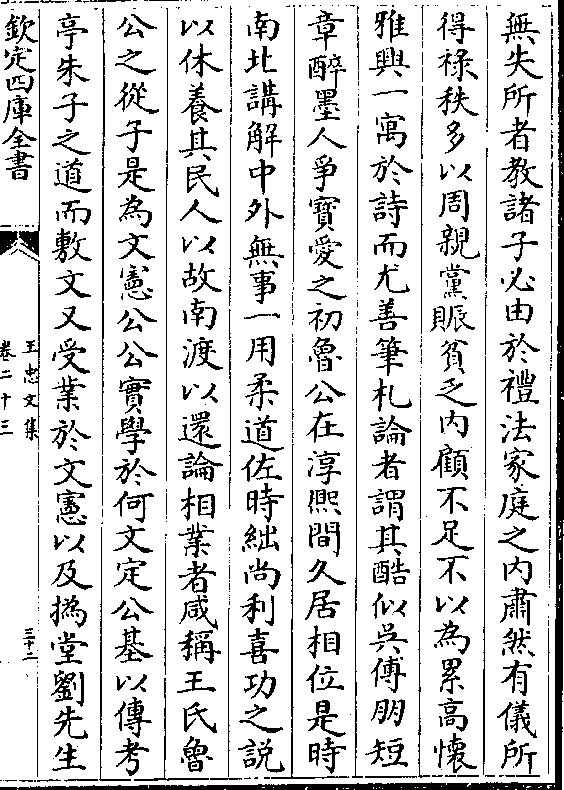 無失所者教諸子必由於禮法家庭之内肅然有儀所
得祿秩多以周親黨賑貧乏内顧不足不以為累高懷
雅興一寓於詩而尤善筆札論者謂其酷似吳傅朋短
章醉墨人爭寳愛之初魯公在淳熈間久居相位是時
南北講解中外無事一用柔道佐時絀尚利喜功之説
以休養其民人以故南渡以還論相業者咸稱王氏魯
公之從子是為文憲公公實學於何文定公基以傳考
亭朱子之道而敷文又受業於文憲以及撝堂劉先生
欽定四庫全書
王忠文集
卷二十三
三十二